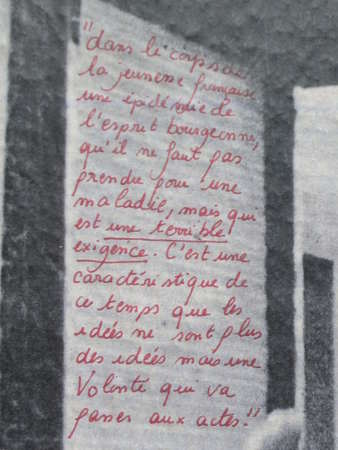 "dans le corps de
la jeunesse française
une épidémie de
l'esprit bourgeonne,
qu'il ne faut pas
prendre pour une
maladie, mais qui
est une terrible
exigence. C'est une
caractéristique de
ce temps que les
idées ne sont plus
des idées mais une
Volonté qui va
passer aux actes."